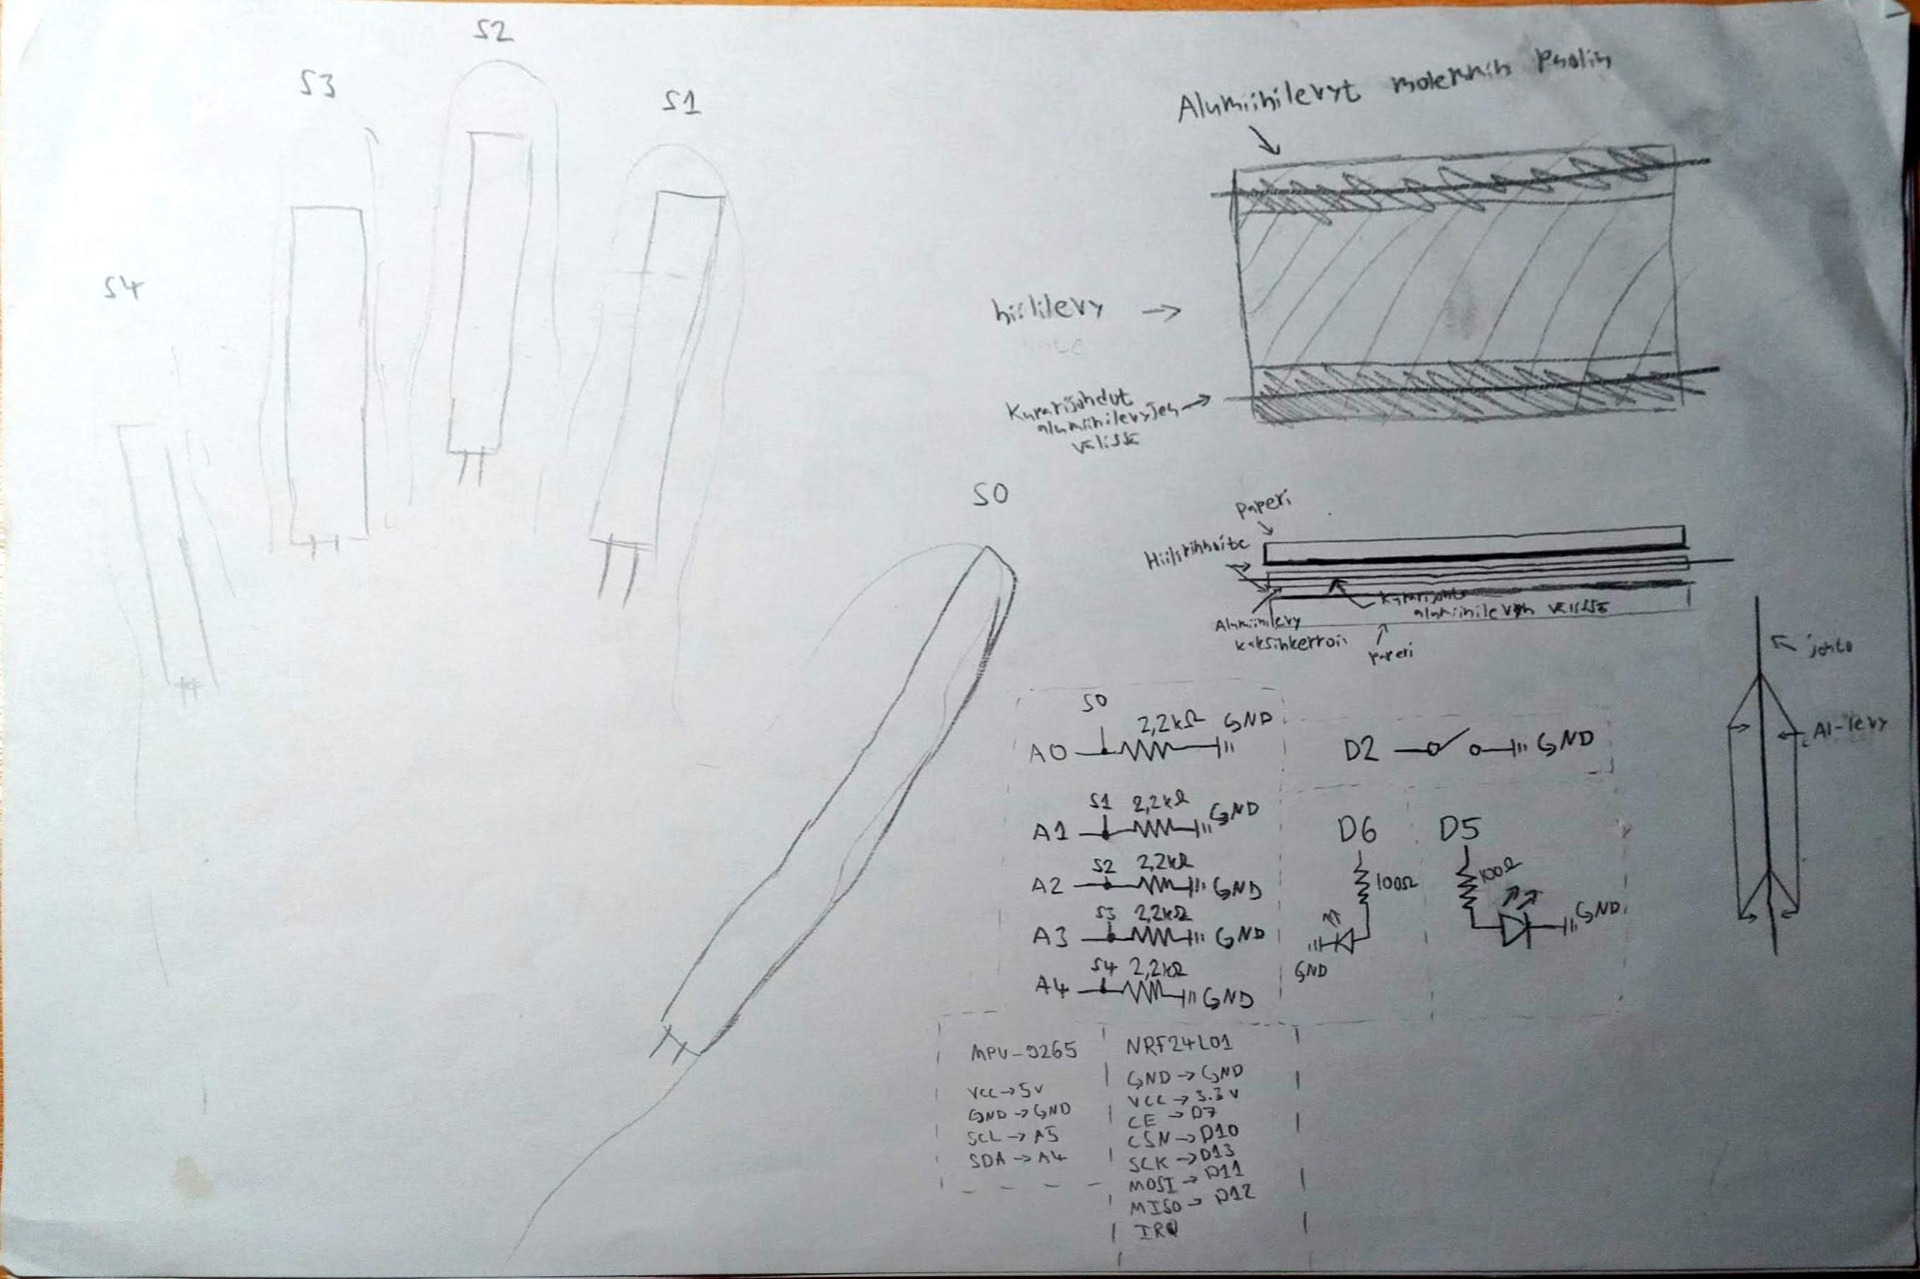 S2
S3
S1
S4
S0
Alumiinilevyt molemmin puolin
hiililevy
Kuparijohdut
alumiinilevyjen
välissä
paperi
Hiilipinnoite
Kuparijohto
alumiinilevyn välissä
Alumiinilevy
kaksinkerroin
paperi
johto
Al-levy
S0
A0 2,2kΩ GND
S1
A1 2,2kΩ GND
S2
A2 2,2kΩ GND
S3
A3 2,2kΩ GND
S4
A4 2,2kΩ GND
D2 GND
D6 D5
100Ω 100Ω
GND GND
MPU-9265
VCC → 5V
GND → GND
SCL → A5
SDA → A4
NRF24L01
GND → GND
VCC → 3.3V
CE → D7
CSN → D10
SCK → D13
MOSI → D11
MISO → D12
IRQ